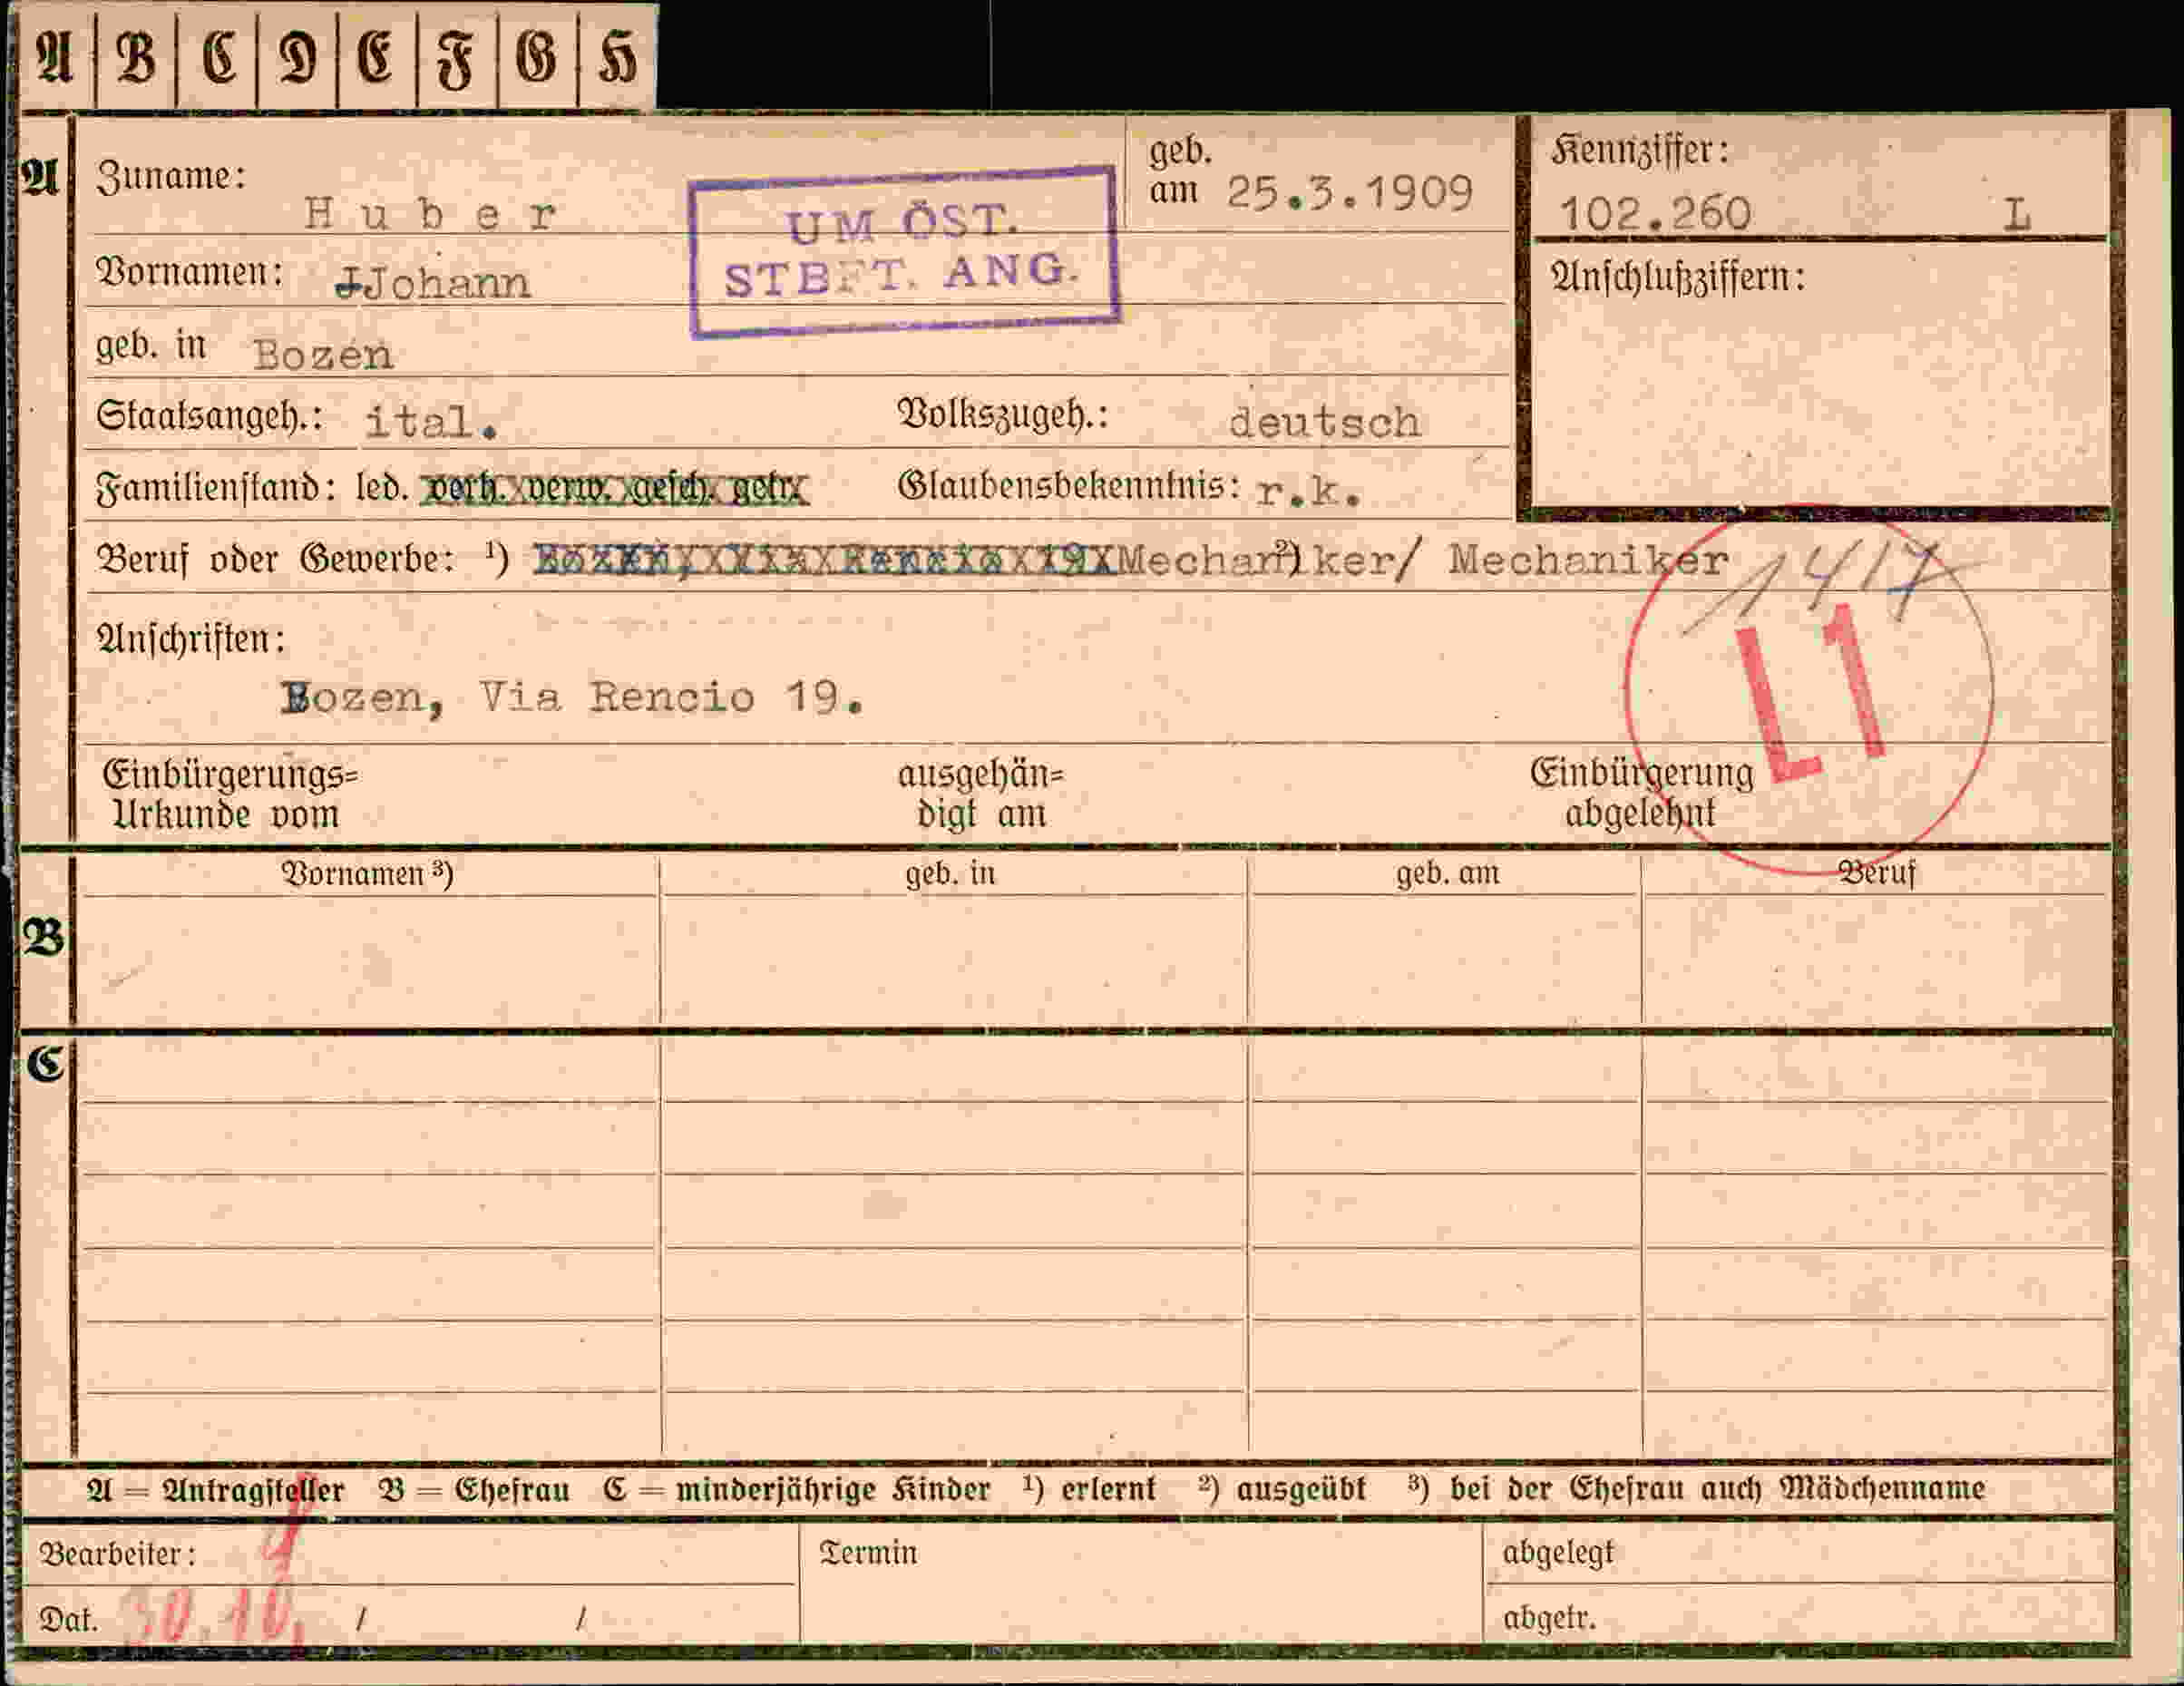 A B C D E F G H
A
Zuname: Huber
geb. am 25.3.1909
Kennziffer: 102.260 L
UM ÖST.
STBFT. ANG.
Vornamen: JJohann
Anschlußziffern:
geb. in Bozen
Staatsangeh.: ital. Volkszugeh.: deutsch
Familienstand: led. verh. verw. gesch. getr. Glaubensbekenntnis: r.k.
Beruf oder Gewerbe: ¹) Mechaniker/ ²) Mechaniker
14/7
L1
Anschriften:
Bozen, Via Rencio 19.
Einbürgerungs= ausgehän= Einbürgerung
Urkunde vom digt am abgelehnt
Vornamen ³) geb. in geb. am Beruf
B
C
A = Antragsteller B = Ehefrau C = minderjährige Kinder ¹) erlernt ²) ausgeübt ³) bei der Ehefrau auch Mädchenname
Bearbeiter: Termin abgelegt
Dat. 30.10. / / abgetr.